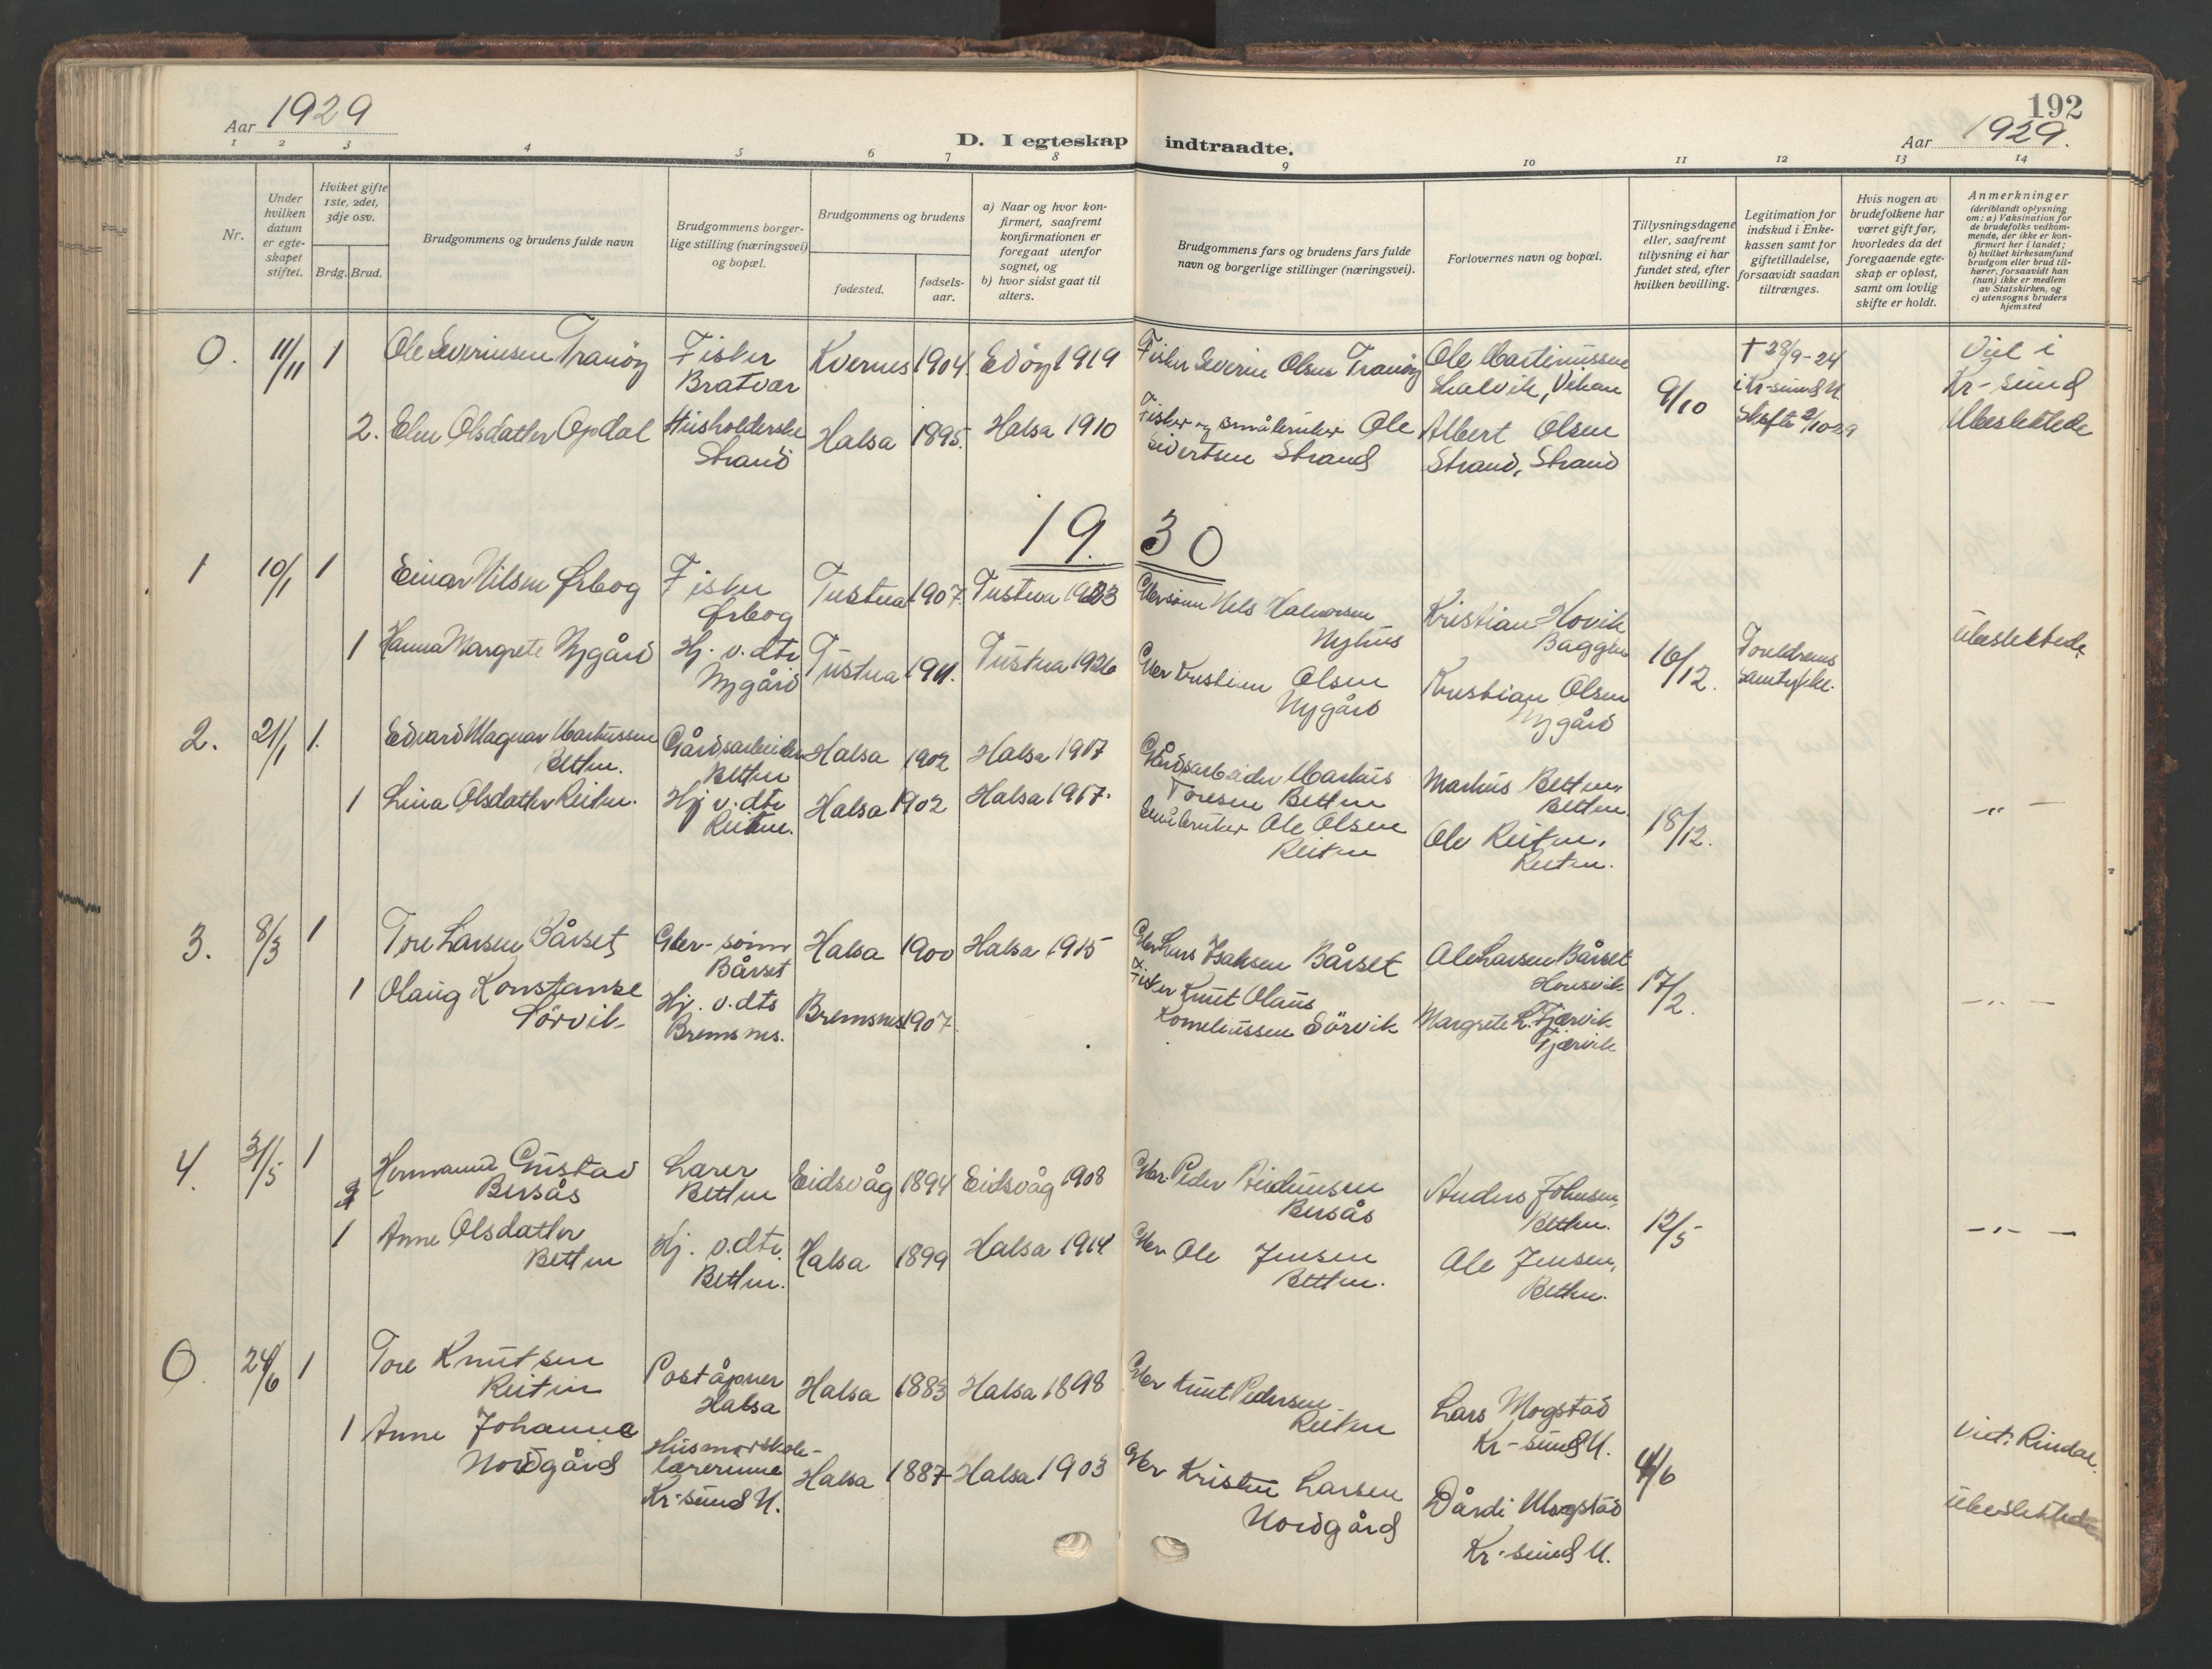 192
Aar 1929
D. I egteskap indtraadte.
Aar 1929.
1 2 3 4 5 6 7 8 9 10 11 12 13 14
Nr.
Under hvilken datum er egteskapet stiftet.
Hviket gifte 1ste, 2det, 3dje osv.
Brdg. Brud.
Brudgommens og brudens fulde navn
Brudgommens borgerlige stilling (næringsvei) og bopæl.
Brudgommens og brudens
fødested.
fødselsaar.
a) Naar og hvor konfirmert, saafremt konfirmationen er foregaat utenfor sognet, og
b) hvor sidst gaat til alters.
Brudgommens fars og brudens fars fulde navn og borgerlige stillinger (næringsvei).
Forlovernes navn og bopæl.
Tillysningsdagene eller, saafremt tillysning ei har fundet sted, efter hvilken bevilling.
Legitimation for indskud i Enkekassen samt for giftetilladelse, forsaavidt saadan tiltrænges.
Hvis nogen av brudefolkene har været gift før, hvorledes da det foregaaende egteskap er opløst, samt om lovlig skifte er holdt.
Anmerkninger
(deriblandt oplysning om: a) Vaksination for de brudefolks vedkommende, der ikke er konfirmert her i landet; b) hvilket kirkesamfund brudgom eller brud tilhører, forsaavidt han (hun) ikke er medlem av Statskirken, og c) utensogns bruders hjemsted
0. 11/11 1 Ole Severinsen Tranöy Fisker Bratvær Kvernes 1904. Edöy 1919 Fisker Severin Olsen Tranöy Ole Martinussen Skalvik, Vihan 9/10 † 28/9-24 i Kr-sund N. Skifte 2/10 29 Viet i Kr-sund Ubeslektede
2. Elen Olsdatter Opdal Husholderske Strand Halsa 1895. Halsa 1910 Fisker og småbruker Ole Sivertsen Strand Albert Olsen Strand, Strand
19.30
1 10/1 1 Einar Nilsen Ørbog Fisker Ørbog Tustna 1907. Tustna 1923 Gbr sönn Nils Halvorsen Nyhus Kristian Hovik Baggen 16/12. Foreldrenes samtykke. Ubeslektede
1 Hanna Margrete Nygård Hj. v. dtr Nygård Tustna 1911. Tustna 1926 Gbr Kristian Olsen Nygård Kristian Olsen Nygård
2. 21/1 1. Edvard Magnar Markussen Betten. Gårdsarbeider Betten Halsa 1902 Halsa 1917 Gårdsarbeider Markus Toresen Betten Markus Betten, Betten. 18/12. -"-
1 Lina Olsdatter Reiten. Hj v. dtr Reiten. Halsa 1902 Halsa 1917. Småbruker Ole Olsen Reiten Ole Reiten, Reiten.
3. 8/3 1 Tore Larsen Bårset Gbr-sönn Bårset Halsa 1900 Halsa 1915 Gbr Lars Isaksen Bårset Ole Larsen Bårset Honsvik 17/2. -"-
1 Olaug Konstanse Sörvik Hj. v. dtr Bremsnes. Bremsnes 1907. Fisker Knut Olaus Korneliussen Sörvik Margrete L. Fjærvik Fjærvik
4. 31/5 1 Hermann Gustav Bersås Lærer Betten Eidsvåg 1894 Eidsvåg 1908 Gbr. Peder Bersås Anders Johnsen, Betten. 12/5 -"-
1 Anne Olsdatter Betten Hj. v. dtr. Betten. Halsa 1899 Halsa 1914 Gbr Ole Jensen Betten. Ole Jensen, Betten.
0. 24/6 1 Tore Knutsen Reiten Poståpner Halsa Halsa 1883 Halsa 1898 Gbr Knut Pedersen Reiten Lars Mogstad Kr-sund N. 4/6 Viet i Rindal. Ubeslektede
1 Anne Johanna Nordgård Husmorskolelærerinne Kr-sund N. Halsa 1887 Halsa 1903 Gbr Kristen Larsen Nordgård Dårdi Mogstad Kr-sund N.